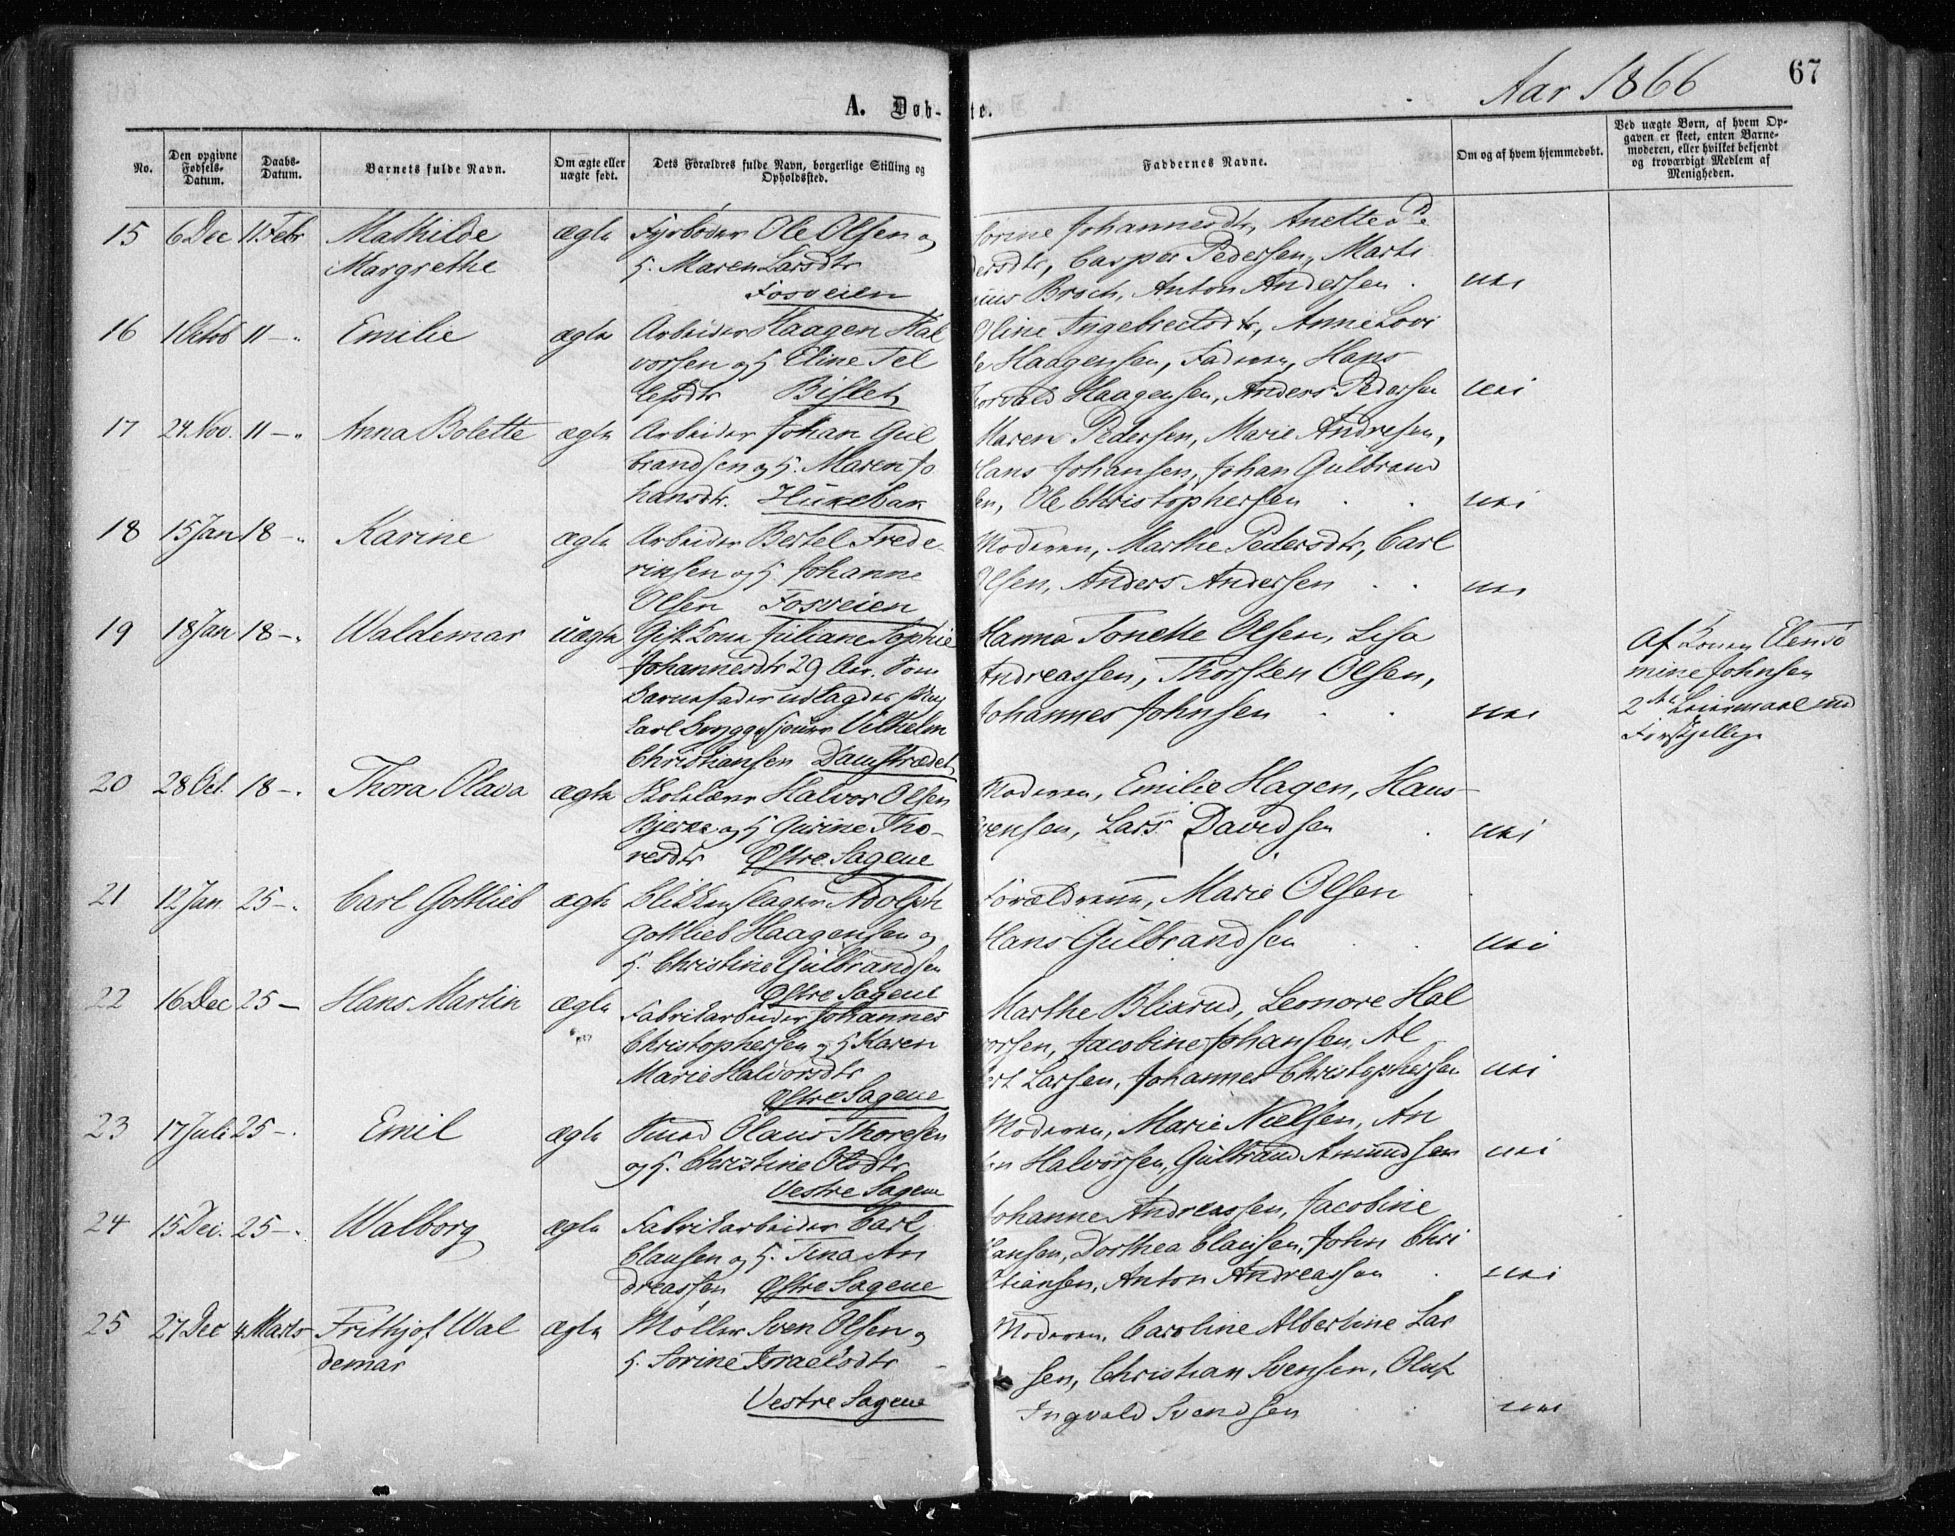 Aar 1866
67
A. Døb-
te.
No.
Den opgivne Fødsels-Datum.
Daabs-Datum.
Barnets fulde Navn.
Om ægte eller uægte født.
Dets Forældres fulde Navn, borgerlige Stilling og Opholdssted.
Faddernes Navne.
Om og af hvem hjemmedøbt.
Ved uægte Børn, af hvem Op-
gaven er skeet, enten Barne-
moderen, eller hvilket bekjendt
og troværdigt Medlem af
Menigheden.
15 6 Dec 11 Febr Mathilde ægte Fyrbøder Ole Olsen og
Margrethe H. Maren Larsdtr
Fosveien
orine Johannesdtr, Anette Pe
dersdtr, Casper Pedersen, Marti
nius Broch, Anton Andersen. nei
16 1 Octob 11 -„ Emilie ægte Arbeider Haagen Hal
vorsen og H Eline Tel
lefsdtr Bislet
line Ingebretsdtr, Anne Lovi
se Haagensen, Faderen, Hans
orvald Haagensen, Anders Pedersen nei
17 24 Nov. 11 -„ Anna Bolette ægte Arbeider Johan Gul
brandsen og H. Maren Jo
hansdtr.
Maren Pedersen, Marie Andresen,
Hans Johansen, Johan Gulbrand
sen, Ole Christophersen nei
18 15 Jan 18 -„ Karine ægte Arbeider Bertel Frede
riksen og H Johanne
Olsen Fosveien
Moderen, Marthe Pedersdtr, Carl
Olsen, Anders Andersen nei
19 18 Jan 18 -„ Waldemar uægte Gift Kone Juliane Sophie
Johannesdtr 29 Aar. Som
Barnefader udlagdes Ung
karl Vilhelm
Christiansen Damstrædet
Hanna Tonette Olsen, Lisa
Andreassen, Thorsten Olsen,
Johannes Johnsen nei
Af Konen Elen
mine Johnsen
2det Leiermaal med
Forskjellige
20 28 Oct. 18 -„ Thora Olava ægte Skolelærer Halvor Olsen
Bjerke og H Gurine Tho-
resdtr Østre Sagene
Moderen, Emilie Hagen, Hans
Svensen, Lars Davidsen nei
21 12 Jan. 25 -„ Carl Gottlieb ægte Blikkenslager Adolph
Gottlieb Haagensen og
H. Christine Gulbrandsen
Østre Sagene
Forældrene, Marie Olsen
Hans Gulbrandsen nei
22 16 Dec 25 - Hans Martin ægte Fabrikarbeider Johannes
Christophersen og H Karen
Marie Halvorsdtr
Østre Sagene
Marthe Blixrud, Leonore Hal
vorsen, Jacobine Johansen, Al
bert Larsen, Johannes Christophersen nei
23 17 Juli 25 -„ Emil ægte Smed Olaus Thoresen
og H. Christine Olsdtr
Vestre Sagene
Moderen, Marie Nielsen, An
ton Halvorsen, Gulbrand Amundsen nei
24 15 Dec. 25 -„ Walborg ægte Fabrikarbeider Carl
Clausen og H. Tina An
dreassen Østre Sagene
Johanne Andreassen, Jacobine
Hansen, Dorthea Clausen, John Chri
stiansen, Anton Andreassen nei
25 27 Dec 4 Marts Frithjof Wal ægte Møller Sven Olsen og
demar H. Sorine Israelsdtr
Vestre Sagene
Moderen, Caroline Albertine Lar
sen, Christian Svensen, Oluf
Ingvald Svendsen nei